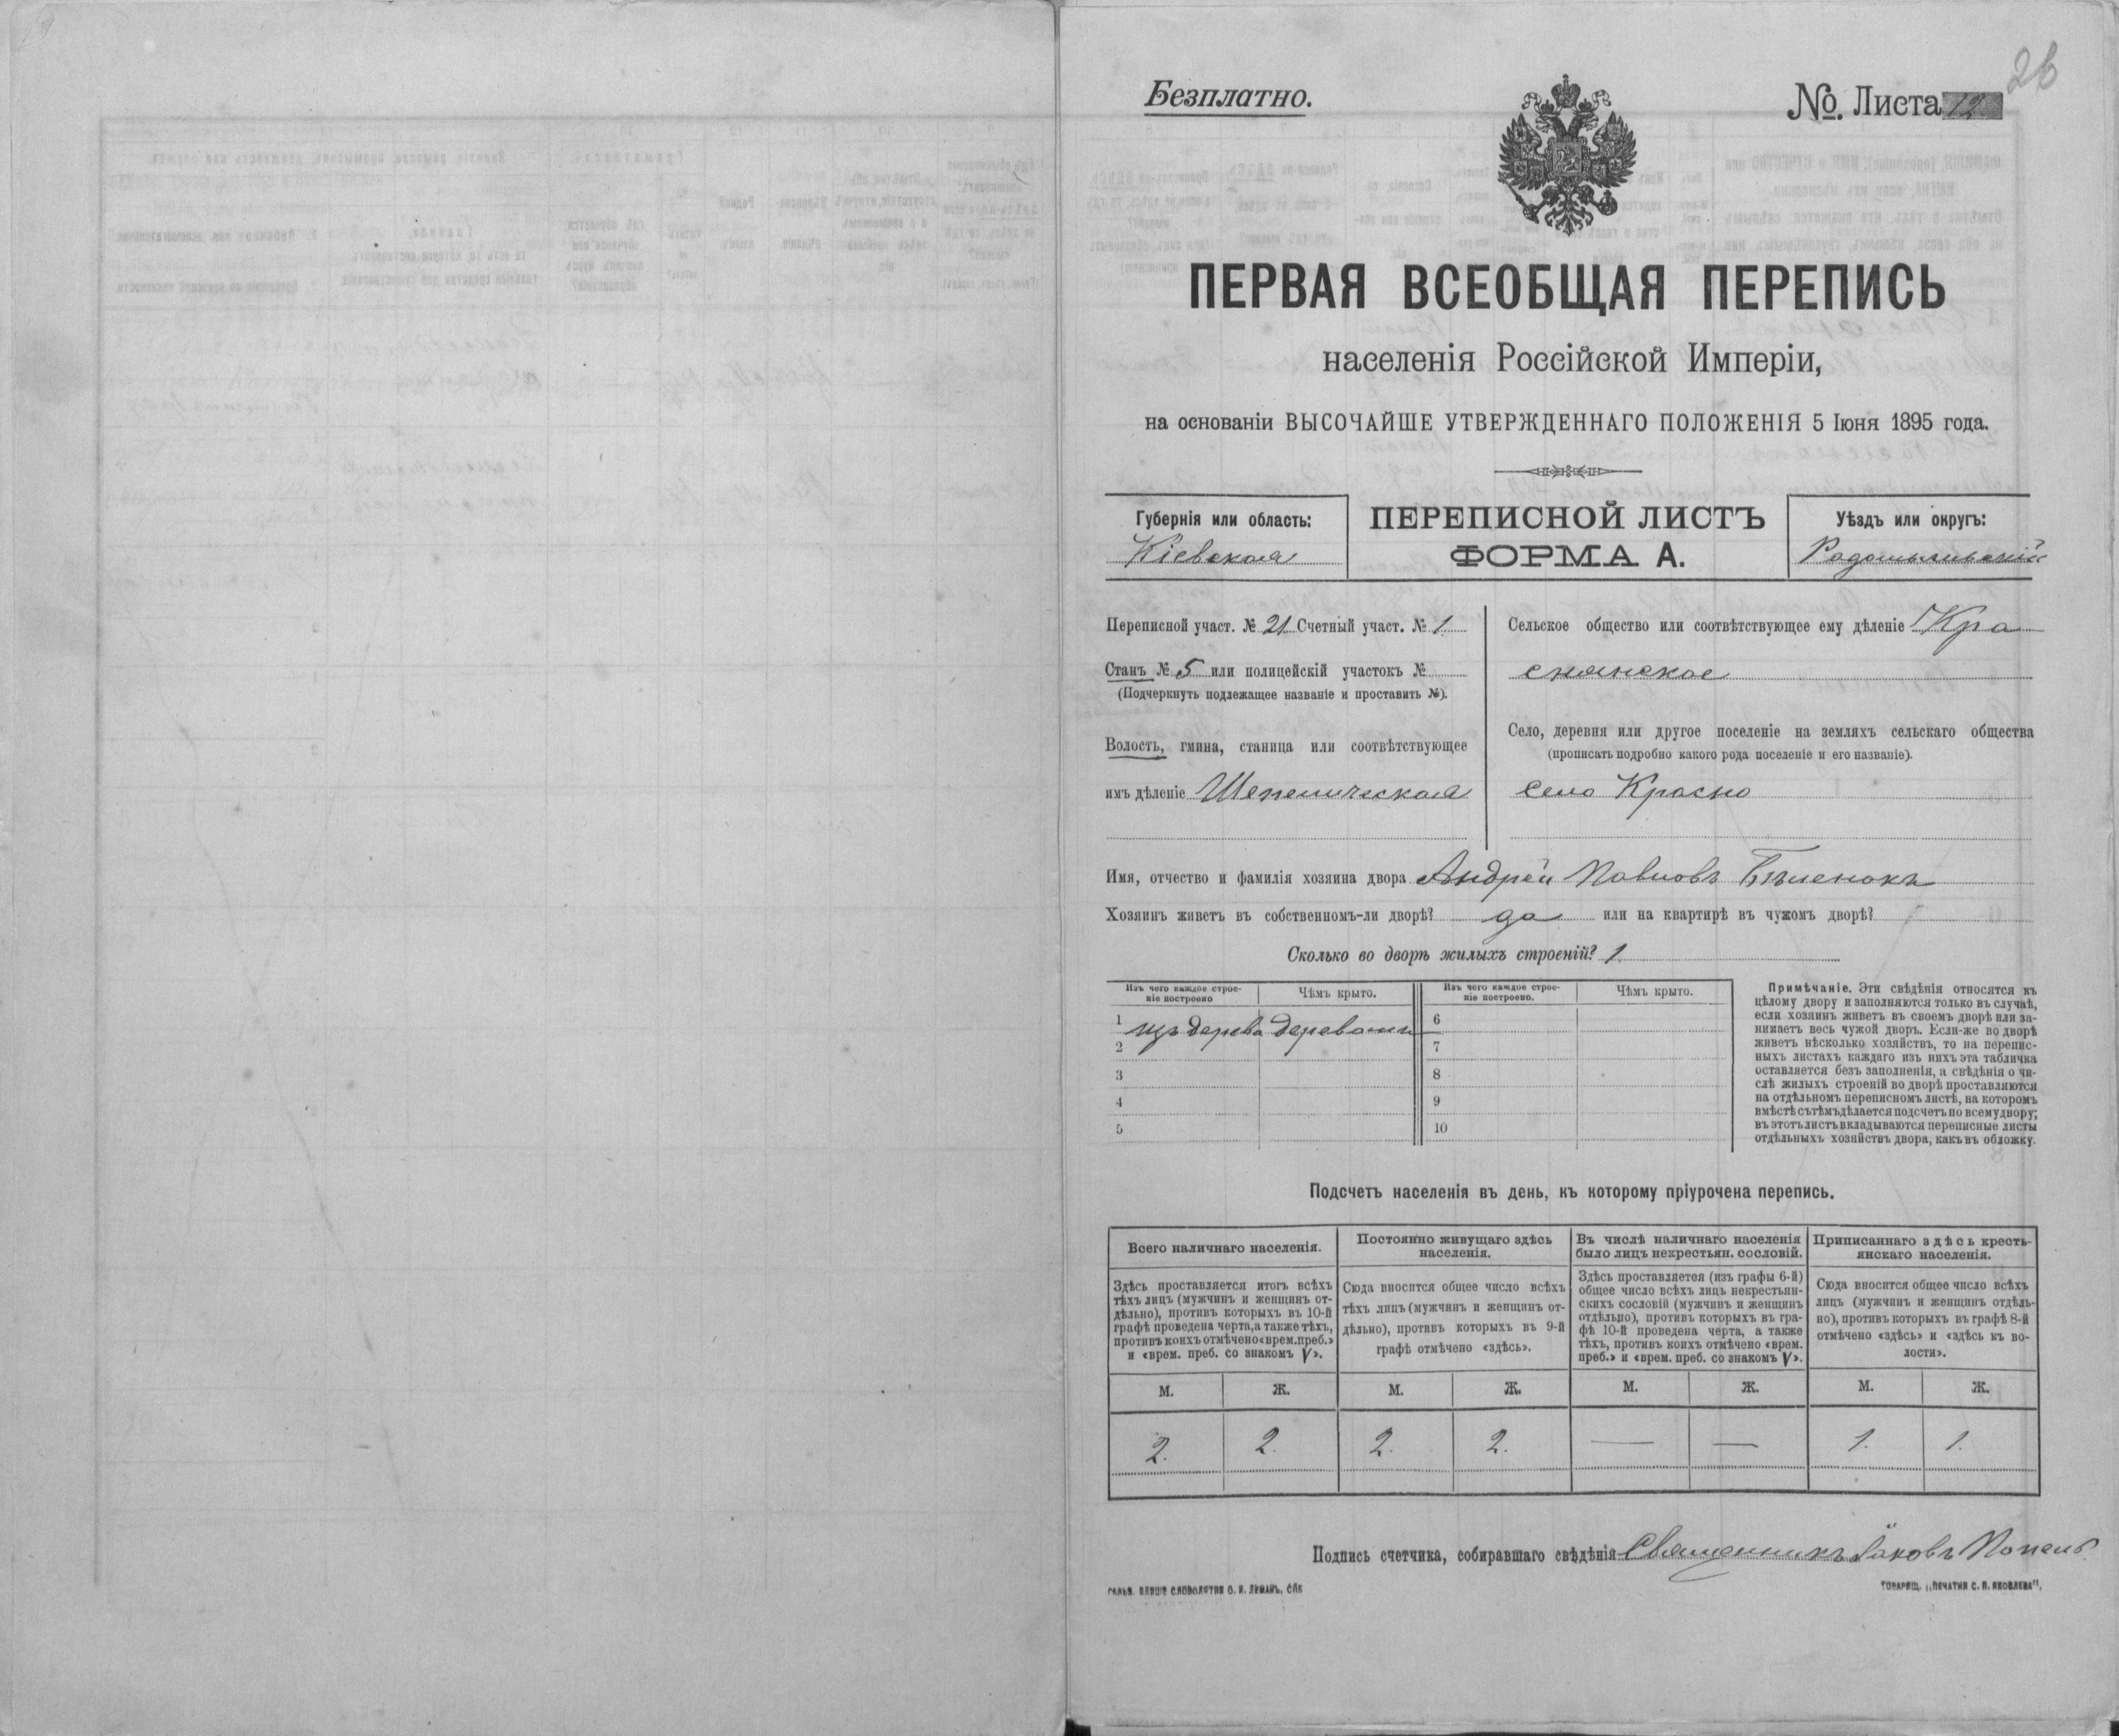 26
Безплатно.
№. Листа 12
ПЕРВАЯ ВСЕОБЩАЯ ПЕРЕПИСЬ
населенія Россійской Имперіи,
на основаніи ВЫСОЧАЙШЕ УТВЕРЖДЕННАГО ПОЛОЖЕНІЯ 5 Іюня 1895 года.
Губернія или область:
Кіевская
ПЕРЕПИСНОЙ ЛИСТЪ
ФОРМА А.
Уѣздъ или округъ:
Радомысльскій
Переписной участ. № 21 Счетный участ. № 1
Станъ № 5 или полицейскій участокъ №
(Подчеркнуть подлежащее названіе и проставить №).
Волость, гмина, станица или соотвѣтствующее
имъ дѣленіе Шепеличская
Сельское общество или соотвѣтствующее ему дѣленіе Кра
снянское
Село, деревня или другое поселеніе на земляхъ сельскаго общества
(прописать подробно какого рода поселеніе и его названіе).
село Красно
Имя, отчество и фамилія хозяина двора Андрей Павловъ
Хозяинъ живетъ въ собственномъ-ли дворѣ? да или на квартирѣ въ чужомъ дворѣ?
Сколько во дворѣ жилыхъ строеній? 1
Изъ чего каждое строе-
ніе построено
Чѣмъ крыто.
Изъ чего каждое строе-
ніе построено.
Чѣмъ крыто.
1 изъ дерева деревомъ 6
2 7
3 8
4 9
5 10
Примѣчаніе. Эти свѣдѣнія относятся къ
цѣлому двору и заполняются только въ случаѣ,
если хозяинъ живетъ въ своемъ дворѣ или за-
нимаетъ весь чужой дворъ. Если-же во дворѣ
живетъ нѣсколько хозяйствъ, то на перепис-
ныхъ листахъ каждаго изъ нихъ эта табличка
оставляется безъ заполненія, а свѣдѣнія о чи-
слѣ жилыхъ строеній во дворѣ проставляются
на отдѣльномъ переписномъ листѣ, на которомъ
вмѣстѣ съ тѣмъ дѣлается подсчетъ по всему двору;
въ этотъ листъ вкладываются переписные листы
отдѣльныхъ хозяйствъ двора, какъ въ обложку.
Подсчетъ населенія въ день, къ которому пріурочена перепись.
Всего наличнаго населенія.
Здѣсь проставляется итогъ всѣхъ
тѣхъ лицъ (мужчинъ и женщинъ от-
дѣльно), противъ которыхъ въ 10-й
графѣ проведена черта, а также тѣхъ,
противъ коихъ отмѣчено «врем. преб.»
и «врем. преб. со знакомъ V».
Постоянно живущаго здѣсь
населенія.
Сюда вносится общее число всѣхъ
тѣхъ лицъ (мужчинъ и женщинъ от-
дѣльно), противъ которыхъ въ 9-й
графѣ отмѣчено «здѣсь».
Въ числѣ наличнаго населенія
было лицъ некрестьян. сословій.
Здѣсь проставляется (изъ графы 6-й)
общее число всѣхъ лицъ некрестьян-
скихъ сословій (мужчинъ и женщинъ
отдѣльно), противъ которыхъ въ гра-
фѣ 10-й проведена черта, а также
тѣхъ, противъ коихъ отмѣчено «врем.
преб.» и «врем. преб. со знакомъ V».
Приписаннаго здѣсь кресть-
янскаго населенія.
Сюда вносится общее число всѣхъ
лицъ (мужчинъ и женщинъ отдѣль-
но), противъ которыхъ въ графѣ 8-й
отмѣчено «здѣсь» и «здѣсь къ во-
лости».
М. Ж. М. Ж. М. Ж. М. Ж.
2. 2. 2. 2. — — 1. 1.
Подпись счетчика, собиравшаго свѣдѣнія Священникъ Іаковъ
ТОВАРИЩ. „ПЕЧАТНЯ С. П. ЯКОВЛЕВА",